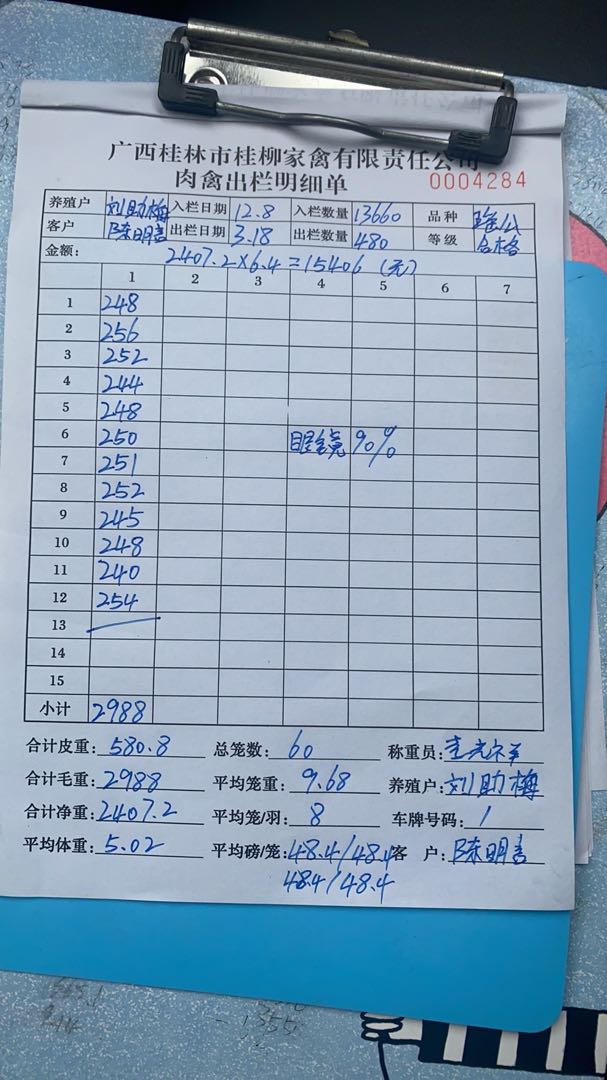 广西桂林市桂柳家禽有限责任公司
肉禽出栏明细单 0004284
养殖户 刘助梅 入栏日期 12.8 入栏数量 13660 品种
客户 陈明言 出栏日期 3.18 出栏数量 480 等级 合格
金额: 2407.2×6.4=15406(元)
1 2 3 4 5 6 7
1 248
2 256
3 252
4 244
5 248
6 250 眼镜90%
7 251
8 252
9 245
10 248
11 240
12 254
13
14
15
小计 2988
合计皮重: 580.8 总笼数: 60 称重员:
合计毛重: 2988 平均笼重: 9.68 养殖户: 刘助梅
合计净重: 2407.2 平均笼/羽: 8 车牌号码: /
平均体重: 5.02 平均磅/笼: 48.4/48.4 客 户: 陈明言
48.4/48.4
1355